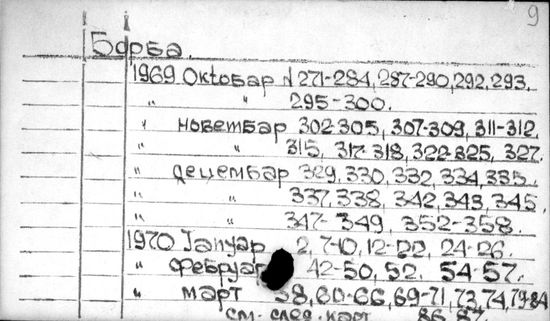 9
Борба.
1969 Октобар N 271-284, 287-290, 292, 293.
" " 295-300.
" новембар 302-305, 307-309, 311-312,
" " 315, 317-318, 322-325, 327.
" децембар 329, 330, 332, 334, 335.
" " 337, 338, 342, 343, 345.
" " 347-349, 352-358.
1970 Јануар 2, 7-10, 12-22, 24-26.
" фебруар 42-50, 52, 54-57.
" март 58, 60-66, 69-71, 73, 74, 79-84
см. след. карт. 86, 87